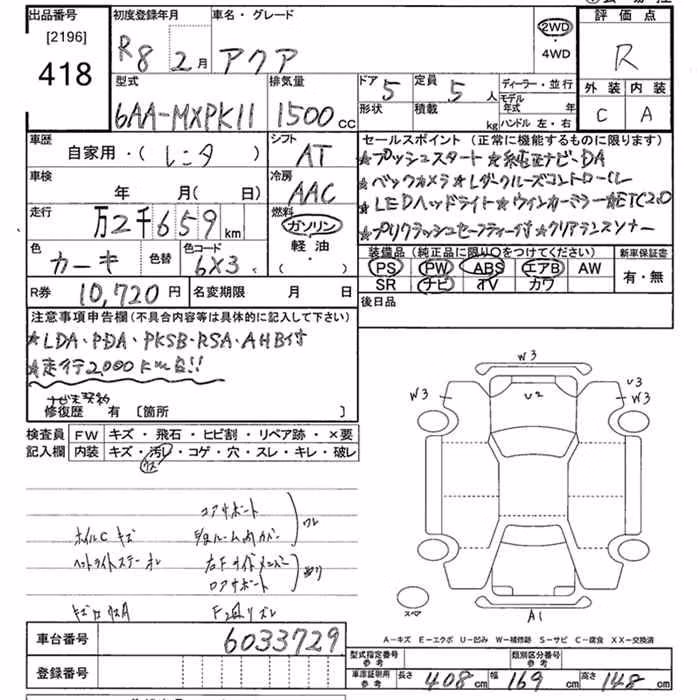 出品番号
[2196]
418
初度登録年月
R8 2月
車名・グレード
アクア
2WD
・
4WD
評価点
R
外装 内装
C A
型式
6AA-MXPK11
排気量
1500 CC
ドア 5
定員 5人
形状
積載 kg
ディーラー・並行
モデル年式 年
ハンドル 左・右
車歴
自家用・(レンタ)
シフト
AT
セールスポイント (正常に機能するものに限ります)
★プッシュスタート ★純正ナビ・DA
★バックカメラ ★レダクルーズコントロール
★LEDヘッドライト ★ウインカーミラー ★ETC2.0
★プリクラッシュセーフティー付 ★クリアランスソナー
車検
年 月(日)
冷房
AAC
走行
万2千659km
燃料
ガソリン
軽油
( ・ )
色
カーキ
色替
色コード
6X3
装備品 (純正品に限り○をつけてください)
PS PW ABS エアB AW
SR ナビ TV カワ
新車保証書
有・無
R券 10,720円
名変期限 月 日
後日品
注意事項申告欄 (不具合内容等は具体的に記入して下さい)
★LDA・PDA・PKSB・RSA・AHB付
★走行2,000km台!!
修復歴 有 [箇所 ]
検査員 FW キズ・飛石・ヒビ割・リペア跡・×要
記入欄 内装 キズ・汚レ・コゲ・穴・スレ・キレ・破レ
コアサポート
ホイルCキズ
ワレ
W3
U2
W3
U3
W3
A1
スペア
A−キズ E−エクボ U−凹み W−補修跡 S−サビ C−腐食 XX−交換済
車台番号 6033729
登録番号
型式指定番号 参考
類別区分番号 参考
車庫証明用 参考 長さ 408cm 幅 169cm 高さ 148cm